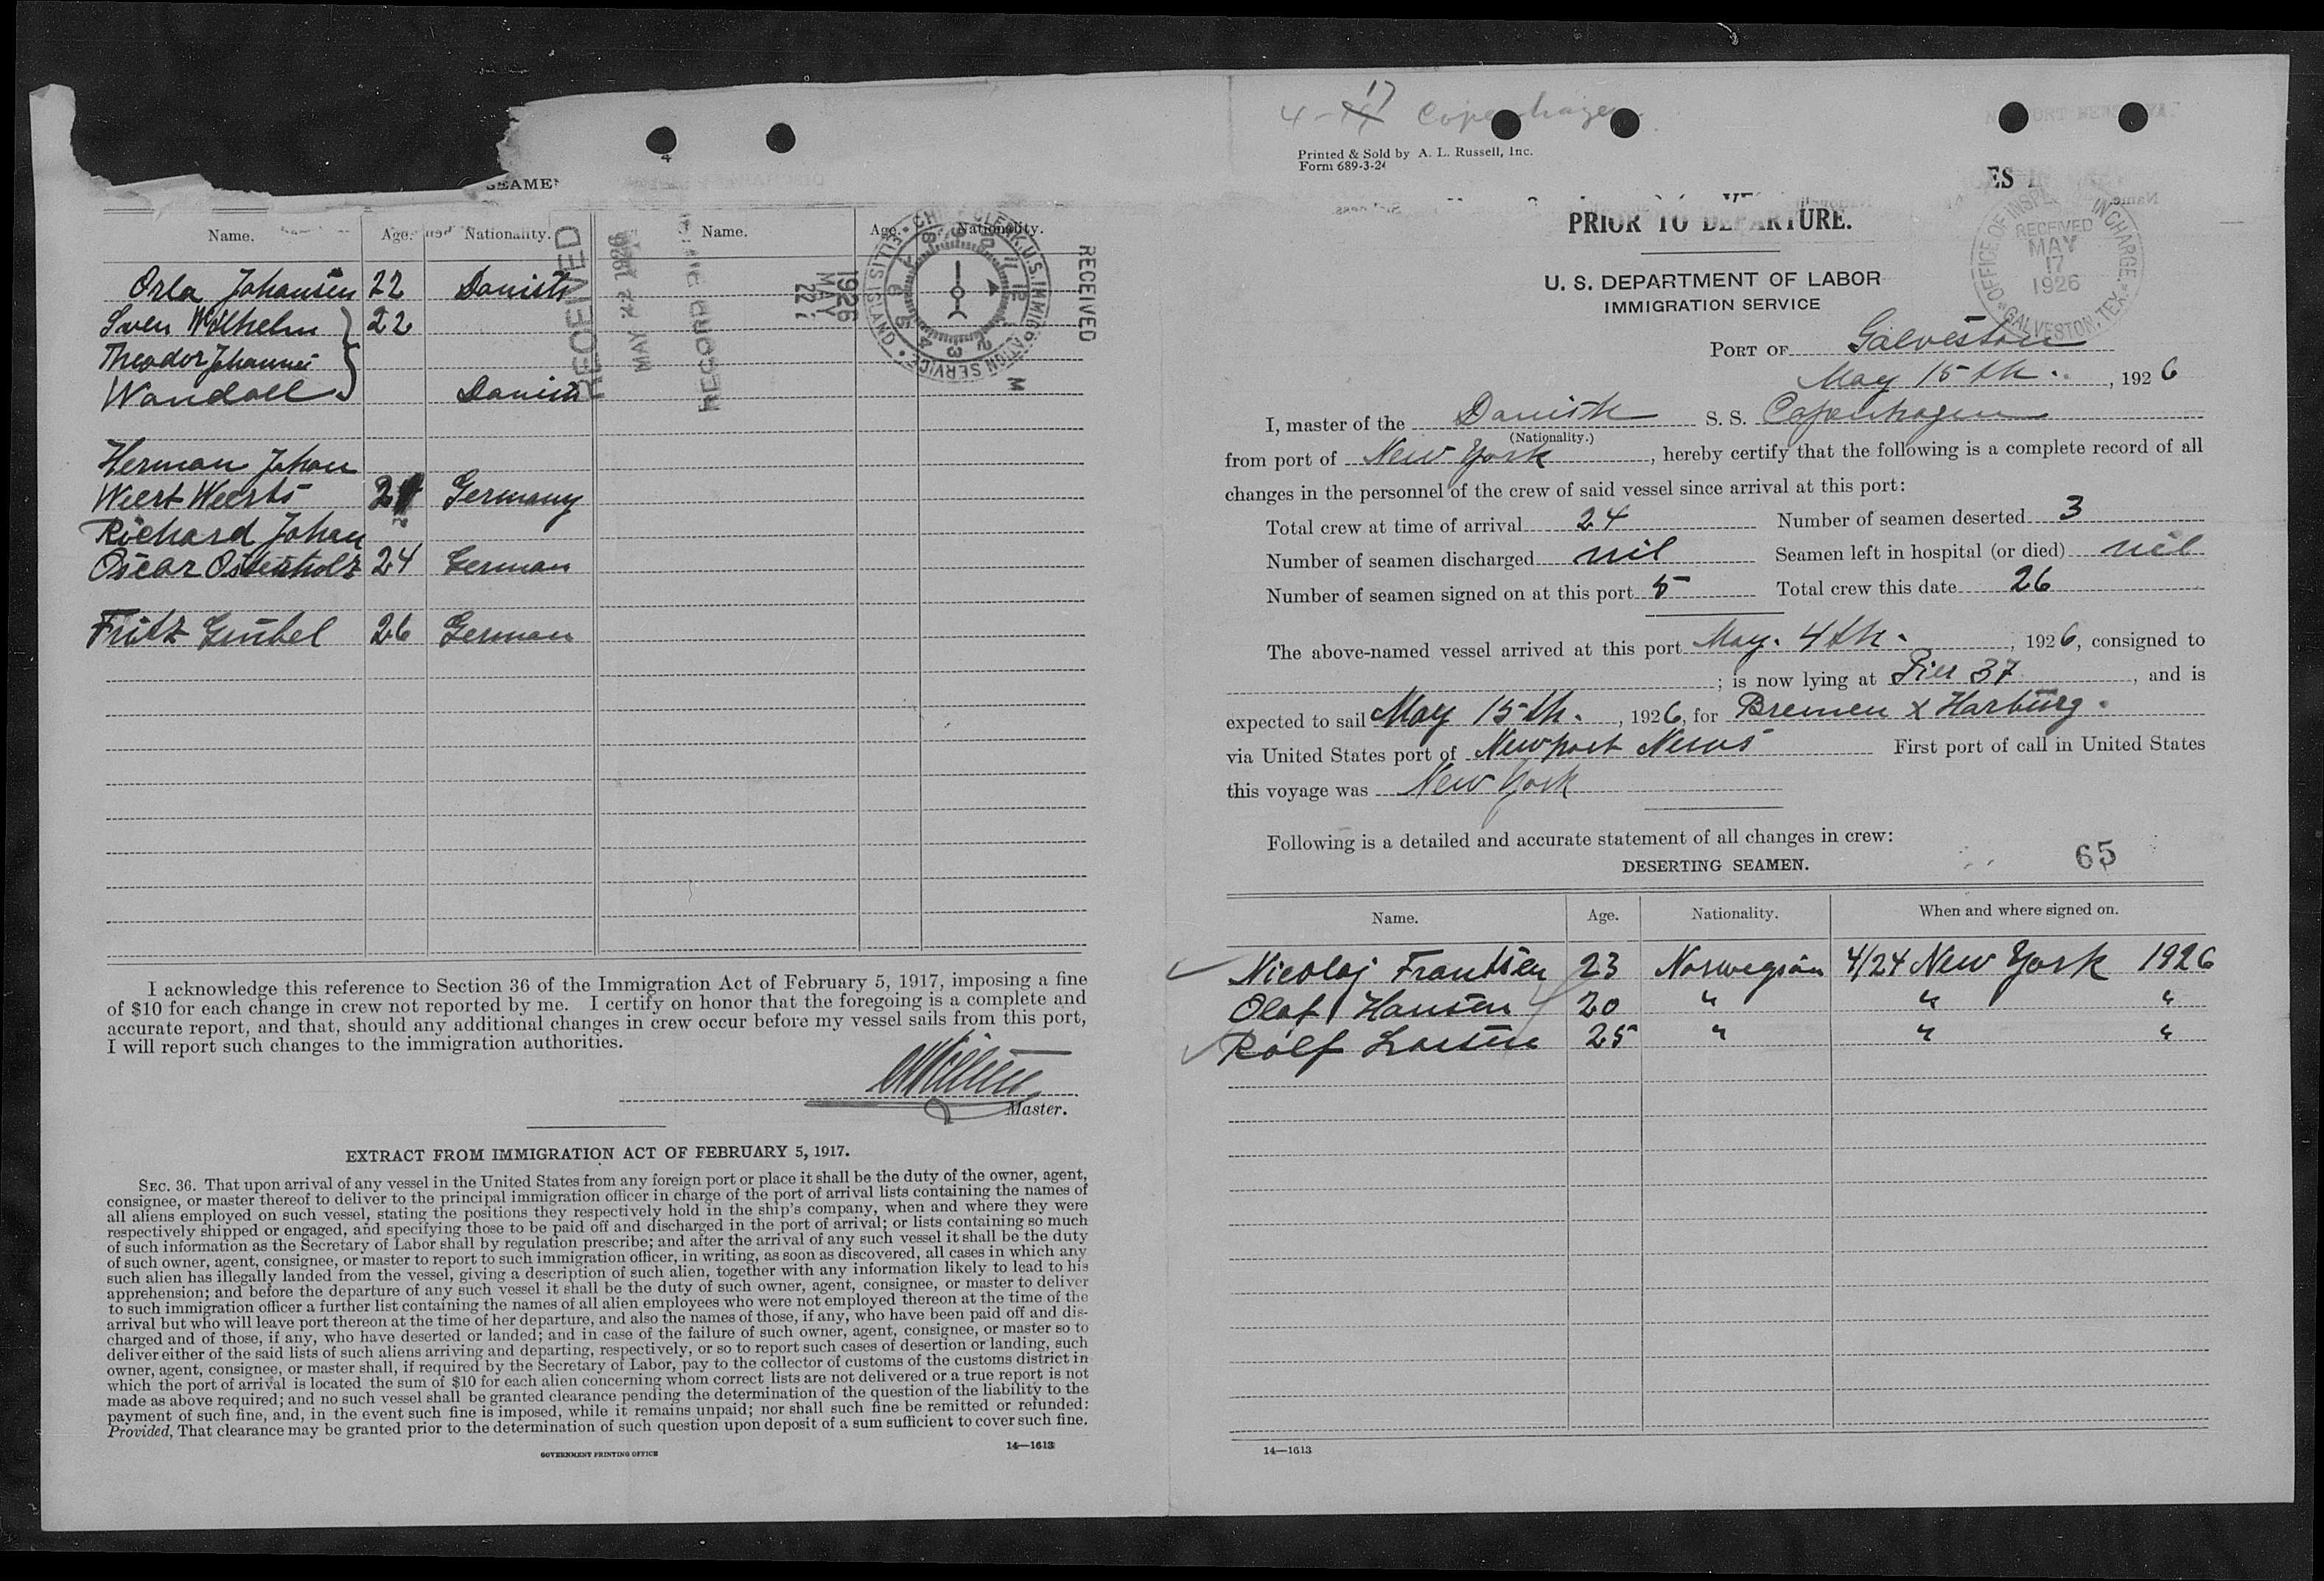 SEAMEN
Name. Age. Nationality. Name. Age. Nationality.
RECEIVED
MAY 22 1926
RECORD
1926
MAY
22
RECEIVED
ELLIS ISLAND • U.S. IMMIGRATION SERVICE
M
Orla Johansen 22 Danish
Sven Wilhelm 22
Theodor Johannes
Wandall Danish
Herman Johan
Weert Weerts Germany
Richard Johan
Oscar Ostenholz 24 German
Fritz Gübel 26 German
I acknowledge this reference to Section 36 of the Immigration Act of February 5, 1917, imposing a fine
of $10 for each change in crew not reported by me. I certify on honor that the foregoing is a complete and
accurate report, and that, should any additional changes in crew occur before my vessel sails from this port,
I will report such changes to the immigration authorities.
Master.
EXTRACT FROM IMMIGRATION ACT OF FEBRUARY 5, 1917.
SEC. 36. That upon arrival of any vessel in the United States from any foreign port or place it shall be the duty of the owner, agent,
consignee, or master thereof to deliver to the principal immigration officer in charge of the port of arrival lists containing the names of
all aliens employed on such vessel, stating the positions they respectively hold in the ship's company, when and where they were
respectively shipped or engaged, and specifying those to be paid off and discharged in the port of arrival; or lists containing so much
of such information as the Secretary of Labor shall by regulation prescribe; and after the arrival of any such vessel it shall be the duty
of such owner, agent, consignee, or master to report to such immigration officer, in writing, as soon as discovered, all cases in which any
such alien has illegally landed from the vessel, giving a description of such alien, together with any information likely to lead to his
apprehension; and before the departure of any such vessel it shall be the duty of such owner, agent, consignee, or master to deliver
to such immigration officer a further list containing the names of all alien employees who were not employed thereon at the time of the
arrival but who will leave port thereon at the time of her departure, and also the names of those, if any, who have been paid off and dis-
charged and of those, if any, who have deserted or landed; and in case of the failure of such owner, agent, consignee, or master so to
deliver either of the said lists of such aliens arriving and departing, respectively, or so to report such cases of desertion or landing, such
owner, agent, consignee, or master shall, if required by the Secretary of Labor, pay to the collector of customs of the customs district in
which the port of arrival is located the sum of $10 for each alien concerning whom correct lists are not delivered or a true report is not
made as above required; and no such vessel shall be granted clearance pending the determination of the question of the liability to the
payment of such fine, and, in the event such fine is imposed, while it remains unpaid; nor shall such fine be remitted or refunded:
Provided, That clearance may be granted prior to the determination of such question upon deposit of a sum sufficient to cover such fine.
GOVERNMENT PRINTING OFFICE 14—1613
4-17 Copenhagen
Printed & Sold by A. L. Russell, Inc.
Form 689-3-24
PRIOR TO DEPARTURE.
OFFICE OF INSPECTOR IN CHARGE
RECEIVED
MAY
17
1926
GALVESTON, TEX.
U. S. DEPARTMENT OF LABOR
IMMIGRATION SERVICE
PORT OF Galveston
May 15th. , 1926
I, master of the Danish S. S. Copenhagen
(Nationality.)
from port of New York , hereby certify that the following is a complete record of all
changes in the personnel of the crew of said vessel since arrival at this port:
Total crew at time of arrival 24 Number of seamen deserted 3
Number of seamen discharged nil Seamen left in hospital (or died) nil
Number of seamen signed on at this port 5 Total crew this date 26
The above-named vessel arrived at this port May. 4th. , 1926, consigned to
; is now lying at Pier 37 , and is
expected to sail May 15th. , 1926, for Bremen x Harburg.
via United States port of Newport News First port of call in United States
this voyage was New York
Following is a detailed and accurate statement of all changes in crew:
DESERTING SEAMEN. 65
Name. Age. Nationality. When and where signed on.
Nicolaj Frantsen 23 Norwegian 4/24 New York 1926
Olaf Hansen 20 " " "
Rolf Larsen 25 " " "
14—1613